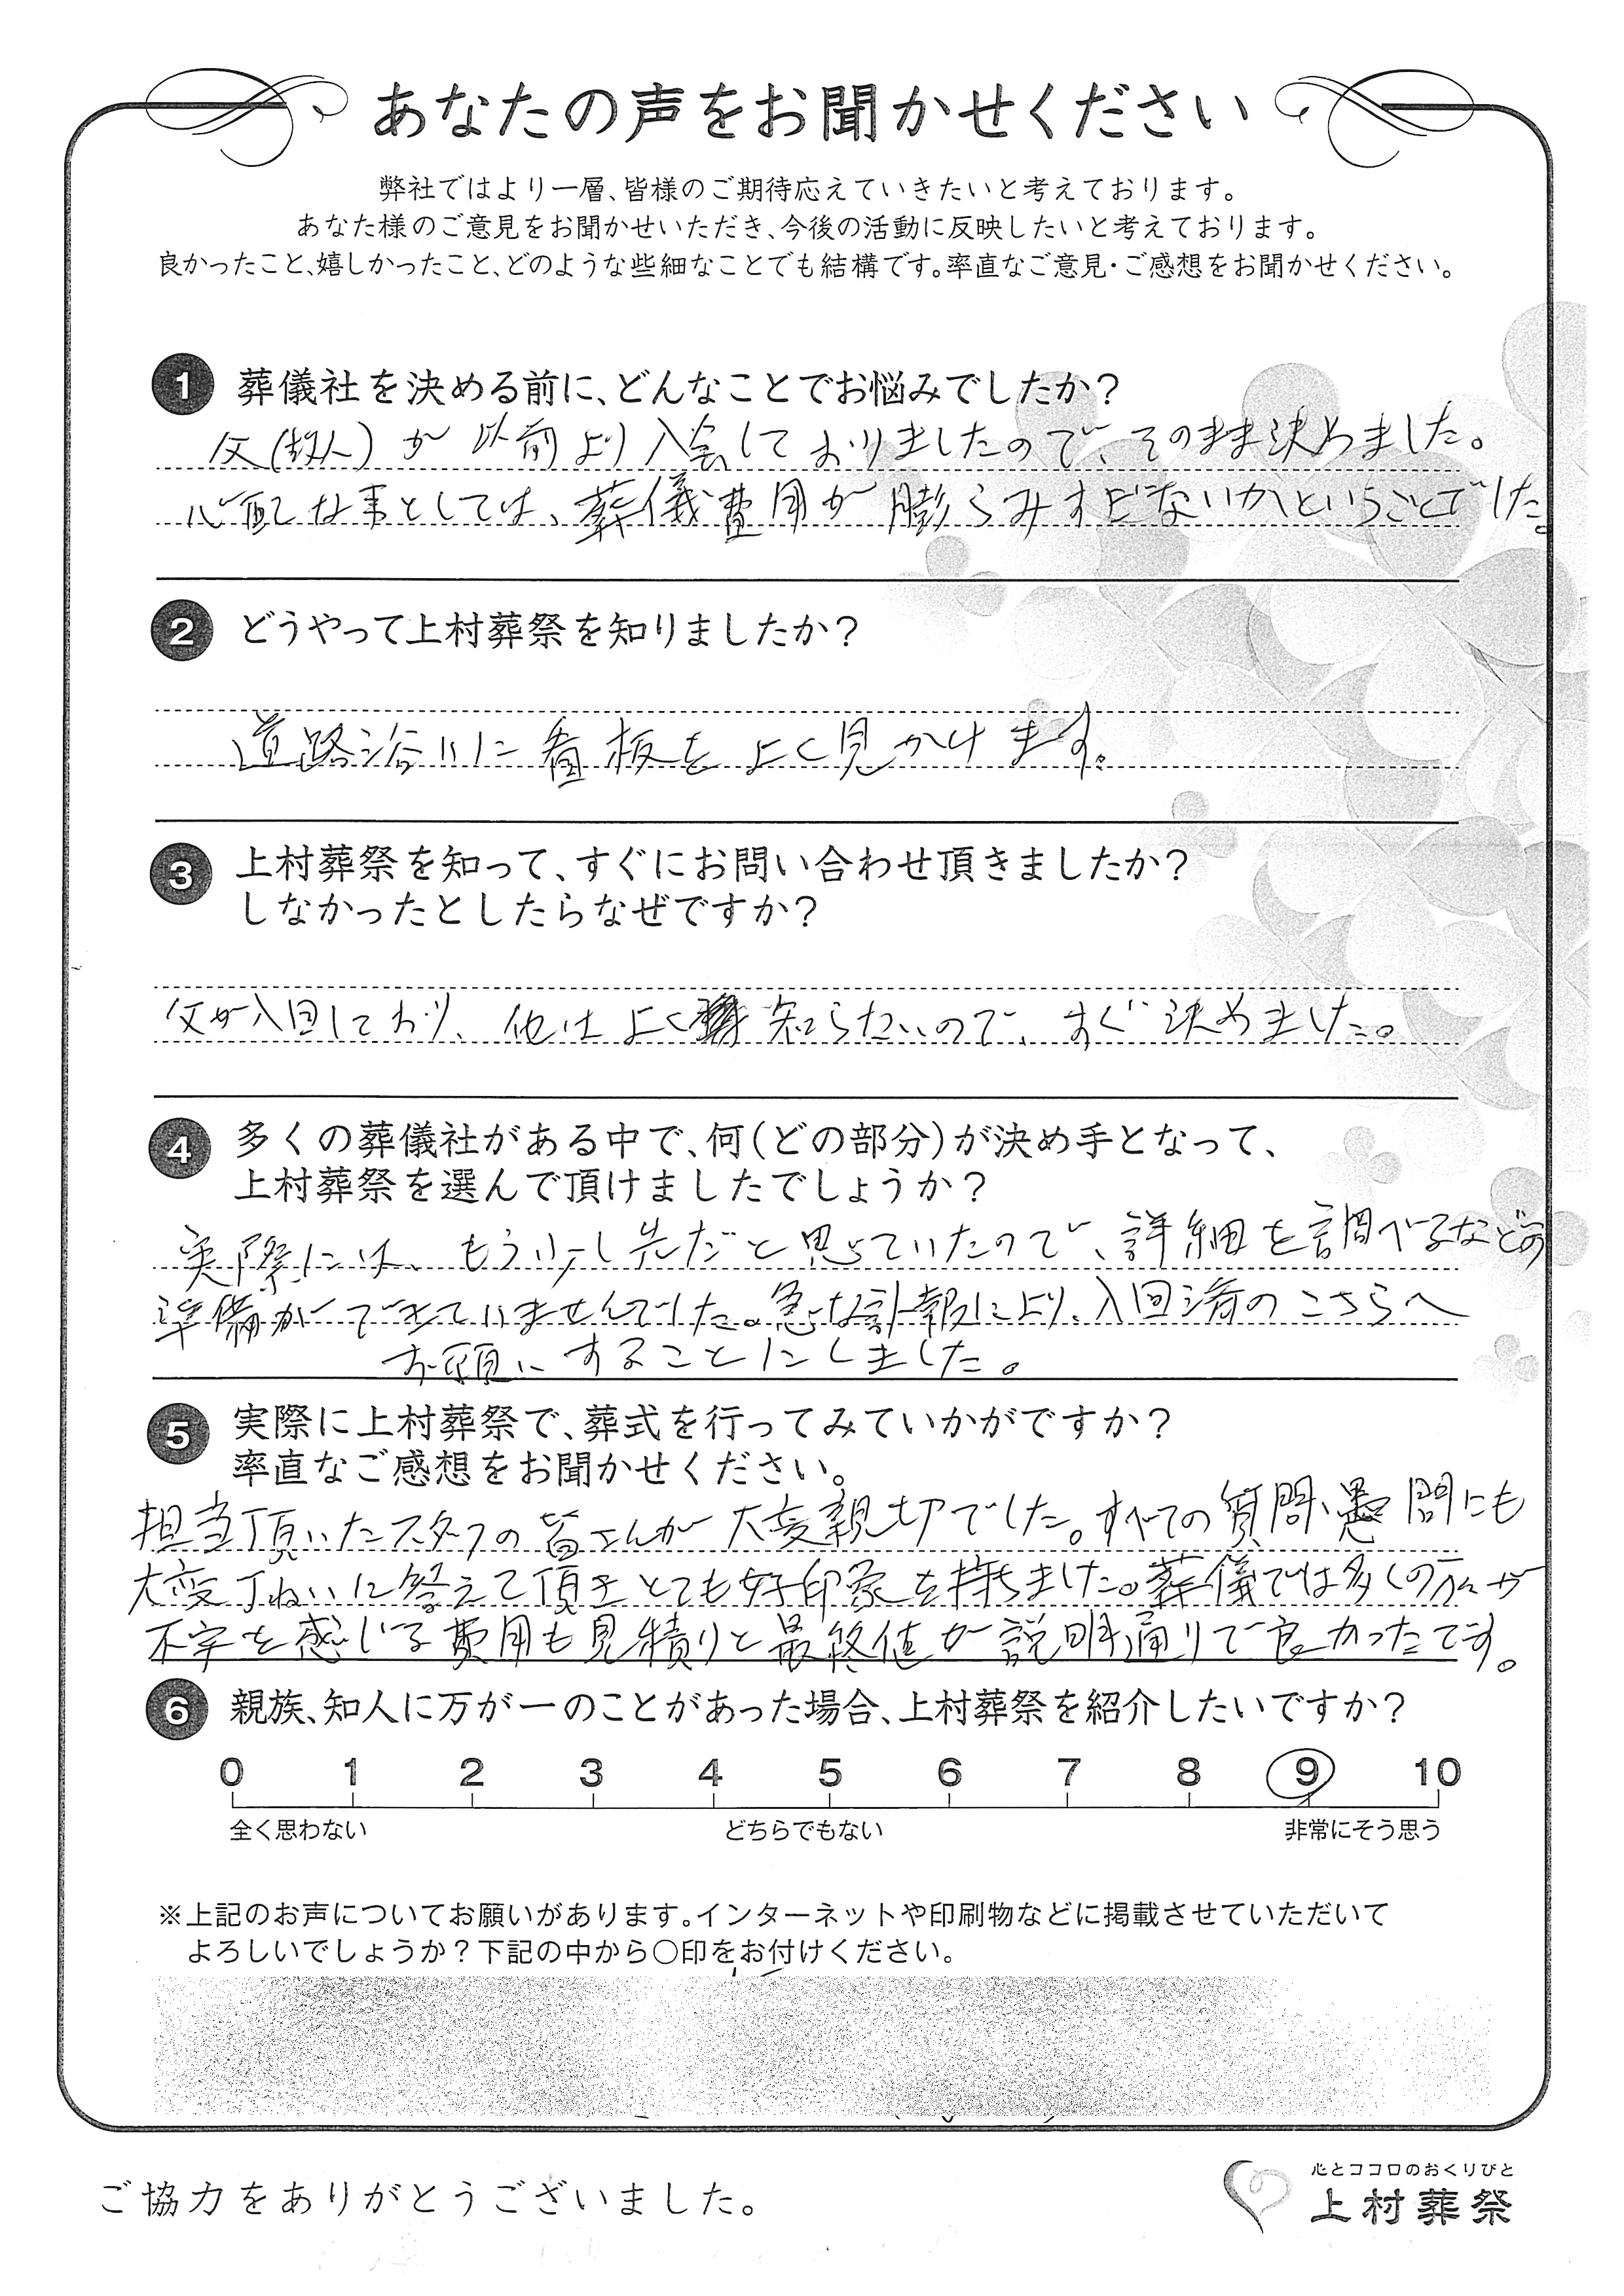 あなたの声をお聞かせください
弊社ではより一層、皆様のご期待応えていきたいと考えております。
あなた様のご意見をお聞かせいただき、今後の活動に反映したいと考えております。
良かったこと、嬉しかったこと、どのような些細なことでも結構です。率直なご意見・ご感想をお聞かせください。
1 葬儀社を決める前に、どんなことでお悩みでしたか？
父(故人)が以前より入会しておりましたので、そのまま決めました。
心配な事としては、葬儀費用が膨らみすぎないかということでした。
2 どうやって上村葬祭を知りましたか？
道路沿いに看板をよく見かけます。
3 上村葬祭を知って、すぐにお問い合わせ頂きましたか？
しなかったとしたらなぜですか？
父が入回しており、他はよく知らないので、すぐ決めました。
4 多くの葬儀社がある中で、何（どの部分）が決め手となって、
上村葬祭を選んで頂けましたでしょうか？
実際には、もう少し先だと思っていたので、詳細を調べるなどの
準備ができていませんでした。急な訃報により、入回済のこちらへ
お願いすることにしました。
5 実際に上村葬祭で、葬式を行ってみていかがですか？
率直なご感想をお聞かせください。
担当頂いたスタッフの皆さんが大変親切でした。すべての質問、愚問にも
大変丁ねいに答えて頂きとても好印象を持ちました。葬儀では多くの方々が
不安を感じる費用も見積りと最終値が説明通りで良かったです。
6 親族、知人に万が一のことがあった場合、上村葬祭を紹介したいですか？
0 1 2 3 4 5 6 7 8 9 10
全く思わない どちらでもない 非常にそう思う
※上記のお声についてお願いがあります。インターネットや印刷物などに掲載させていただいて
よろしいでしょうか？下記の中から○印をお付けください。
ご協力をありがとうございました。
心とココロのおくりびと
上村葬祭